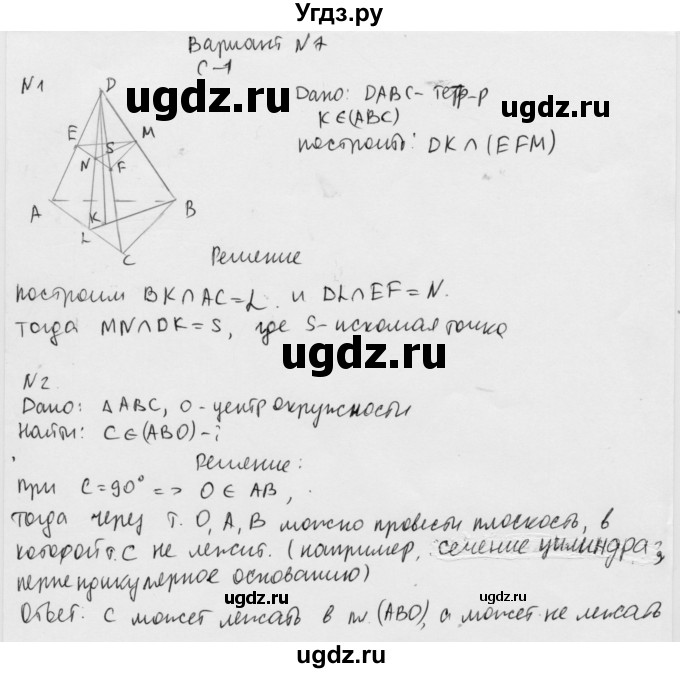 Угдз.ру
Вариант №7
С-1
№1
Дано: DABC - тетр-р
K∈(ABC)
построить: DK ∩ (EFM)
D
E
M
S
N
F
A
K
B
L
C
ugdz.ru
ugdz.ru
Решение
построим BK∩AC=L. и DL∩EF=N.
тогда MN∩DK=S, где S-искомая точка
ugdz.ru
№2.
Дано: △ABC, O-центр окружности
Найти: C∈(ABO) -
Решение:
При C=90° => O∈AB,
ugdz.ru
ugdz.ru
тогда через т. O, A, B можно провести плоскость, в
которой т. C не лежит. (например, сечение цилиндра,
перпендикулярное основанию)
Ответ: C может лежать в пл. (ABO), а может не лежать
ugdz.ru
ugdz.ru